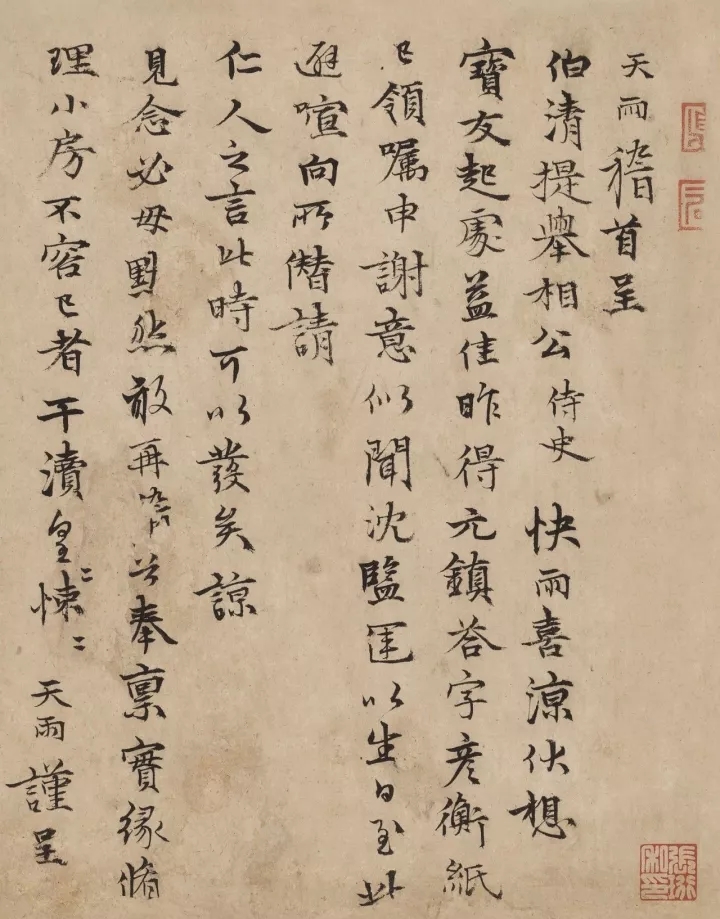 天雨稽首呈
伯清提舉相公侍史 快雨喜涼伏想
寶友起處益佳昨得元鎮荅字彥衡紙
已領囑申謝意似聞沈鹽運以生日至此
避喧向所僭請
仁人之言此時可以發矣諒
見念必毋默然敢再稽首奉稟實緣脩
理小房不容已者干瀆皇〻悚〻 天雨謹呈